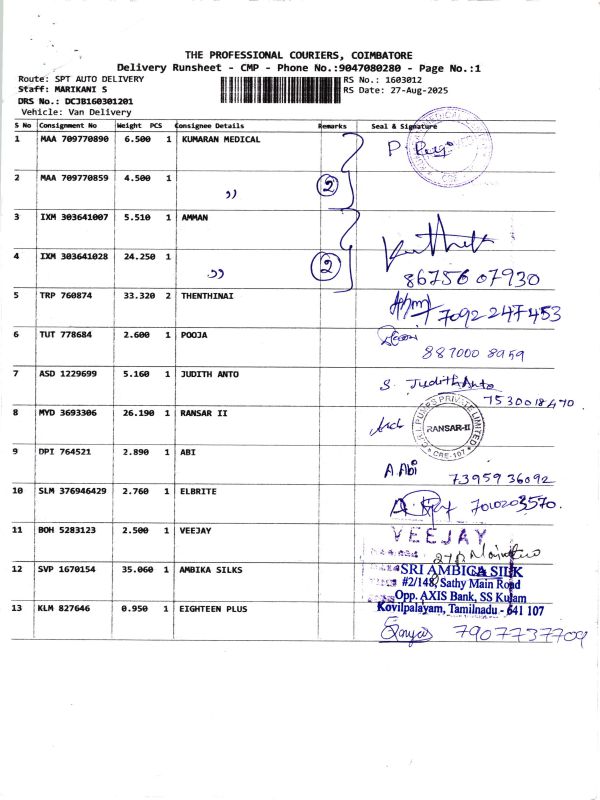 THE PROFESSIONAL COURIERS, COIMBATORE
Delivery Runsheet - CMP - Phone No.:9047080280 - Page No.:1
Route: SPT AUTO DELIVERY RS No.: 1603012
Staff: MARIKANI S RS Date: 27-Aug-2025
DRS No.: DCJB160301201
Vehicle: Van Delivery
S No Consignment No Weight PCS Consignee Details Remarks Seal & Signature
1 MAA 709770890 6.500 1 KUMARAN MEDICAL P
2 MAA 709770859 4.500 1 ,, 2
3 IXM 303641007 5.510 1 AMMAN
4 IXM 303641028 24.250 1 ,, 2
86756 07930
5 TRP 760874 33.320 2 THENTHINAI 7092247453
6 TUT 778684 2.600 1 POOJA
887000 8959
7 ASD 1229699 5.160 1 JUDITH ANTO S. Judith Anto
7530018470
8 MYD 3693306 26.190 1 RANSAR II C.R.I. PUMPS PRIVATE LIMITED RANSAR-II CBE-107
9 DPI 764521 2.890 1 ABI A Abi
73959 36092
10 SLM 376946429 2.760 1 ELBRITE 7010203570.
11 BOH 5283123 2.500 1 VEEJAY VEEJAY
12 SVP 1670154 35.060 1 AMBIKA SILKS SRI AMBIGA SILK
#2/148, Sathy Main Road
Opp. AXIS Bank, SS Kulam
Kovilpalayam, Tamilnadu - 641 107
13 KLM 827646 0.950 1 EIGHTEEN PLUS
7907737709